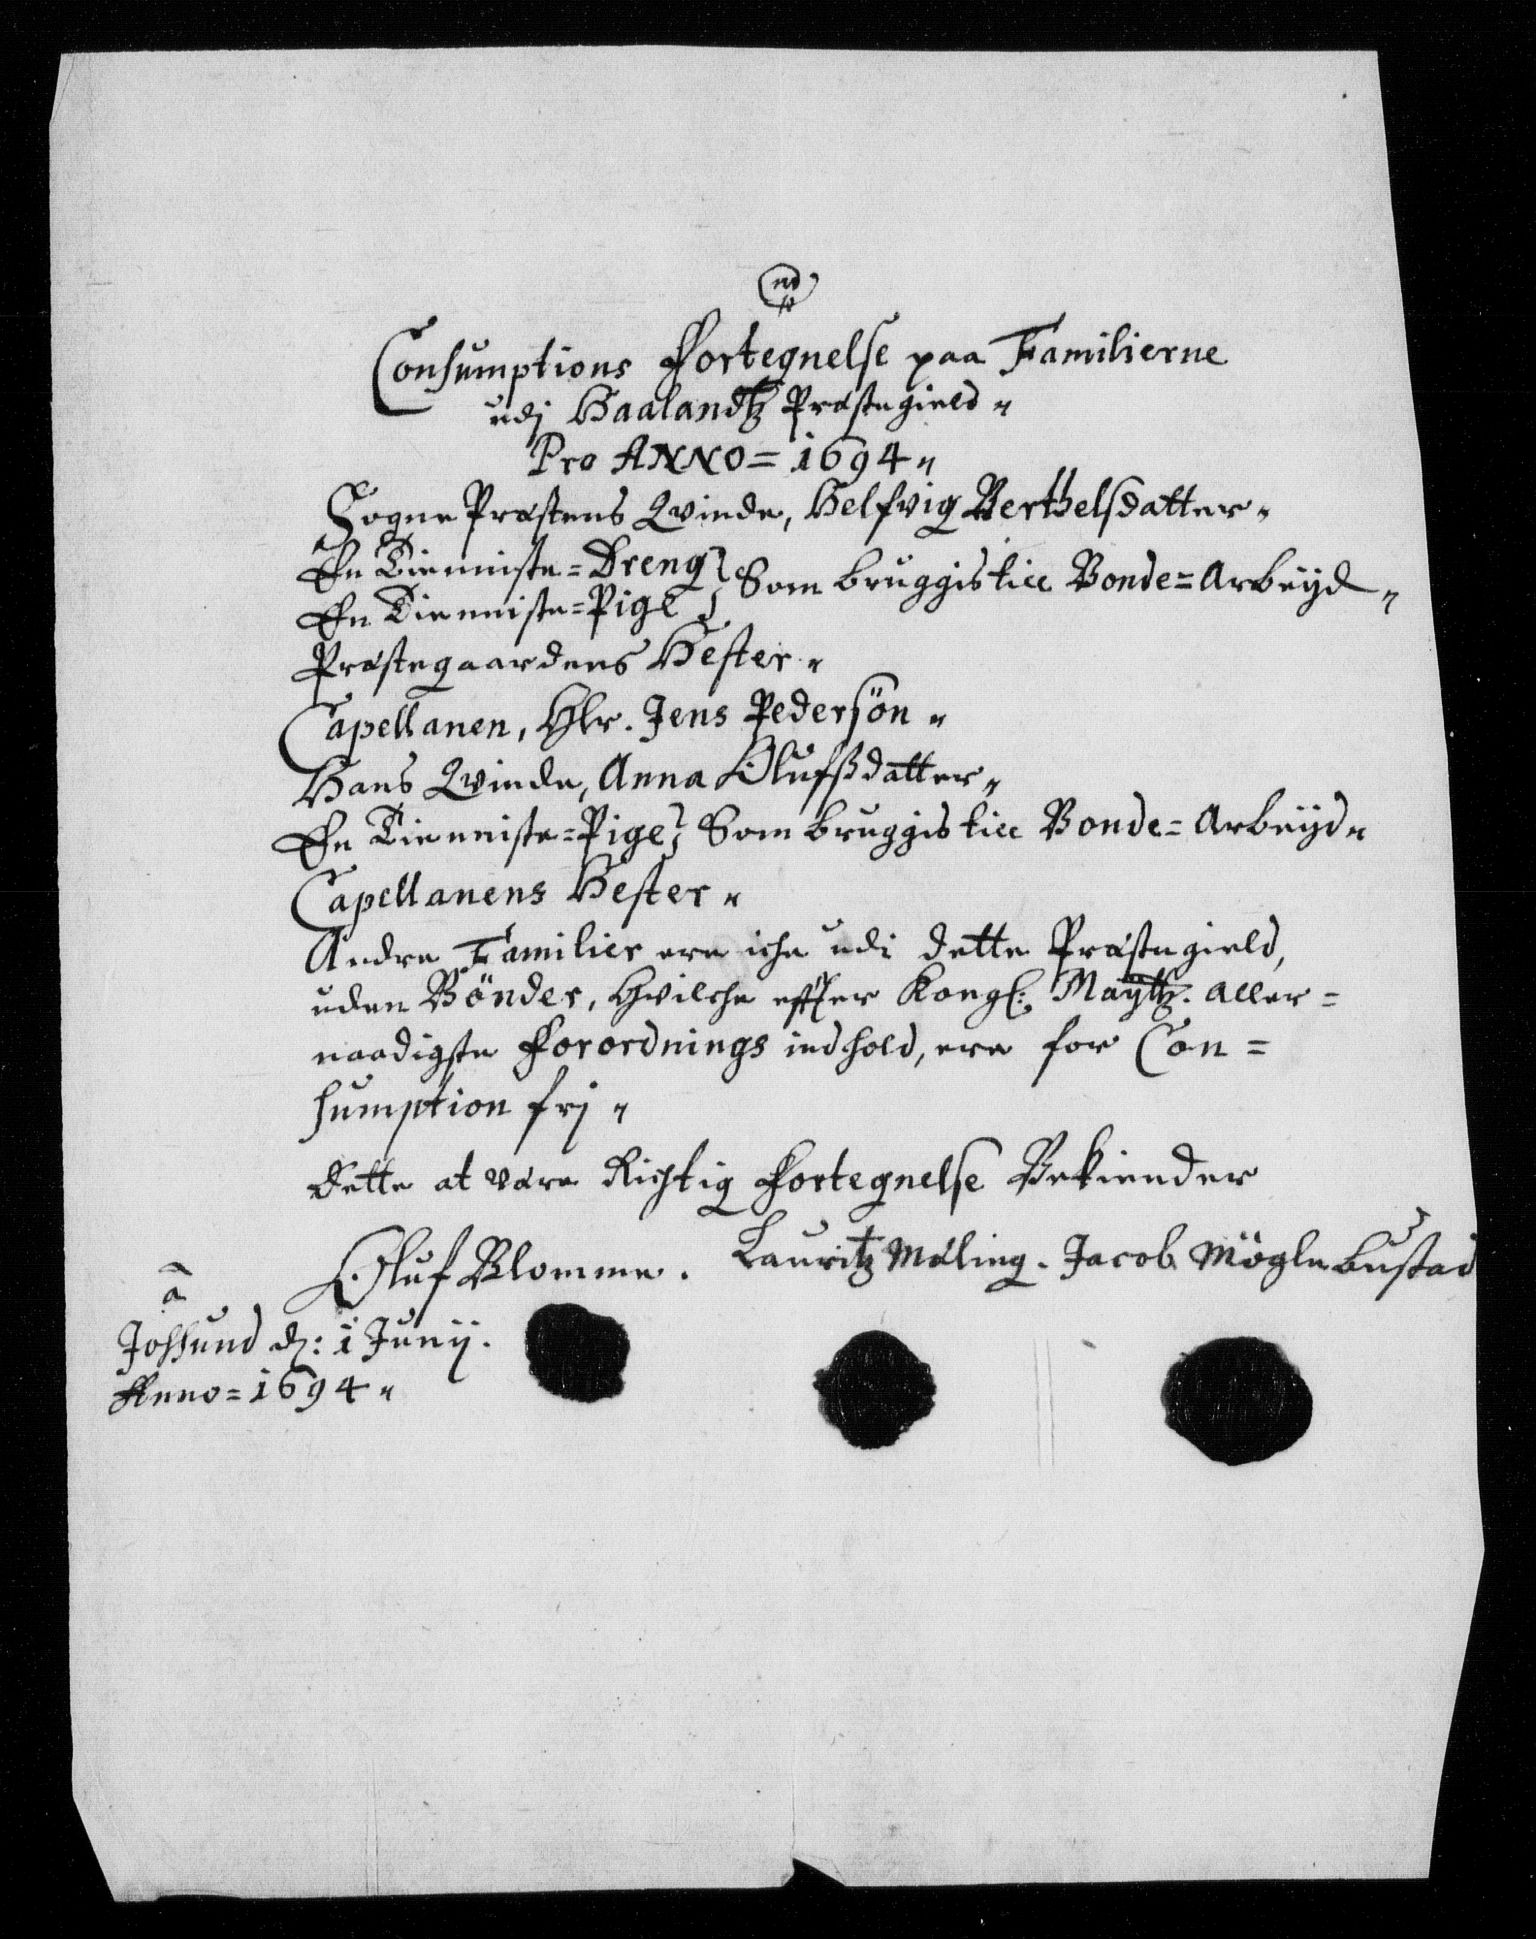 Consumptions Fortegnelse paa Familierne
udj Haalandtz Præstegield
Pro ANNO = 1694
Sogne Præstens Qvinde, Helfvig Berthelsdatter
En Tienniste=Dreng
En Tienniste=Pige } Som bruggis till Bonde=Arbeyd
Præstegaardens Hester
Capellanen, Hlr. Jens Pedersön
Hans Qvinde, Anna Olufsdatter
En Tienniste=Pige } Som bruggis till Bonde=Arbeyd
Capellanens Hester
Andre Familier ere iche udi dette Præstegield,
uden Bönder, hvilche effter Kongl: Maytz. aller=
naadigste Forordnings indhold, ere for Con=
sumption frj
Dette at være Richtig Fortegnelse Bekiender
Oluf Blomme. Lauritz Mæling. Jacob Möglebustad
a
Jossund d: 1 Junij.
Anno = 1694